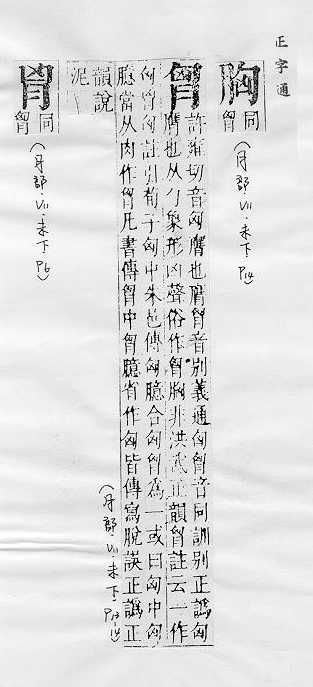 正字通
胷
同
胷
(月部·VII·未下 P14)
胷
許雍切音匈膺也膺胷音別義通匈胷音同訓別正譌匈
膺也从勹象形凶聲俗作胷胸非洪武正韻胷註云一作
匈胷匈註引荀子匈中朱邑傳匈臆合匈胷為一或曰匈中匈
臆當从肉作胷凡書傳胷中胷臆省作匈皆傳寫脫誤正譌正
韻說
泥
(月部·VII·未下 P13-14)
同
胷
(月部·VII·未下 P6)